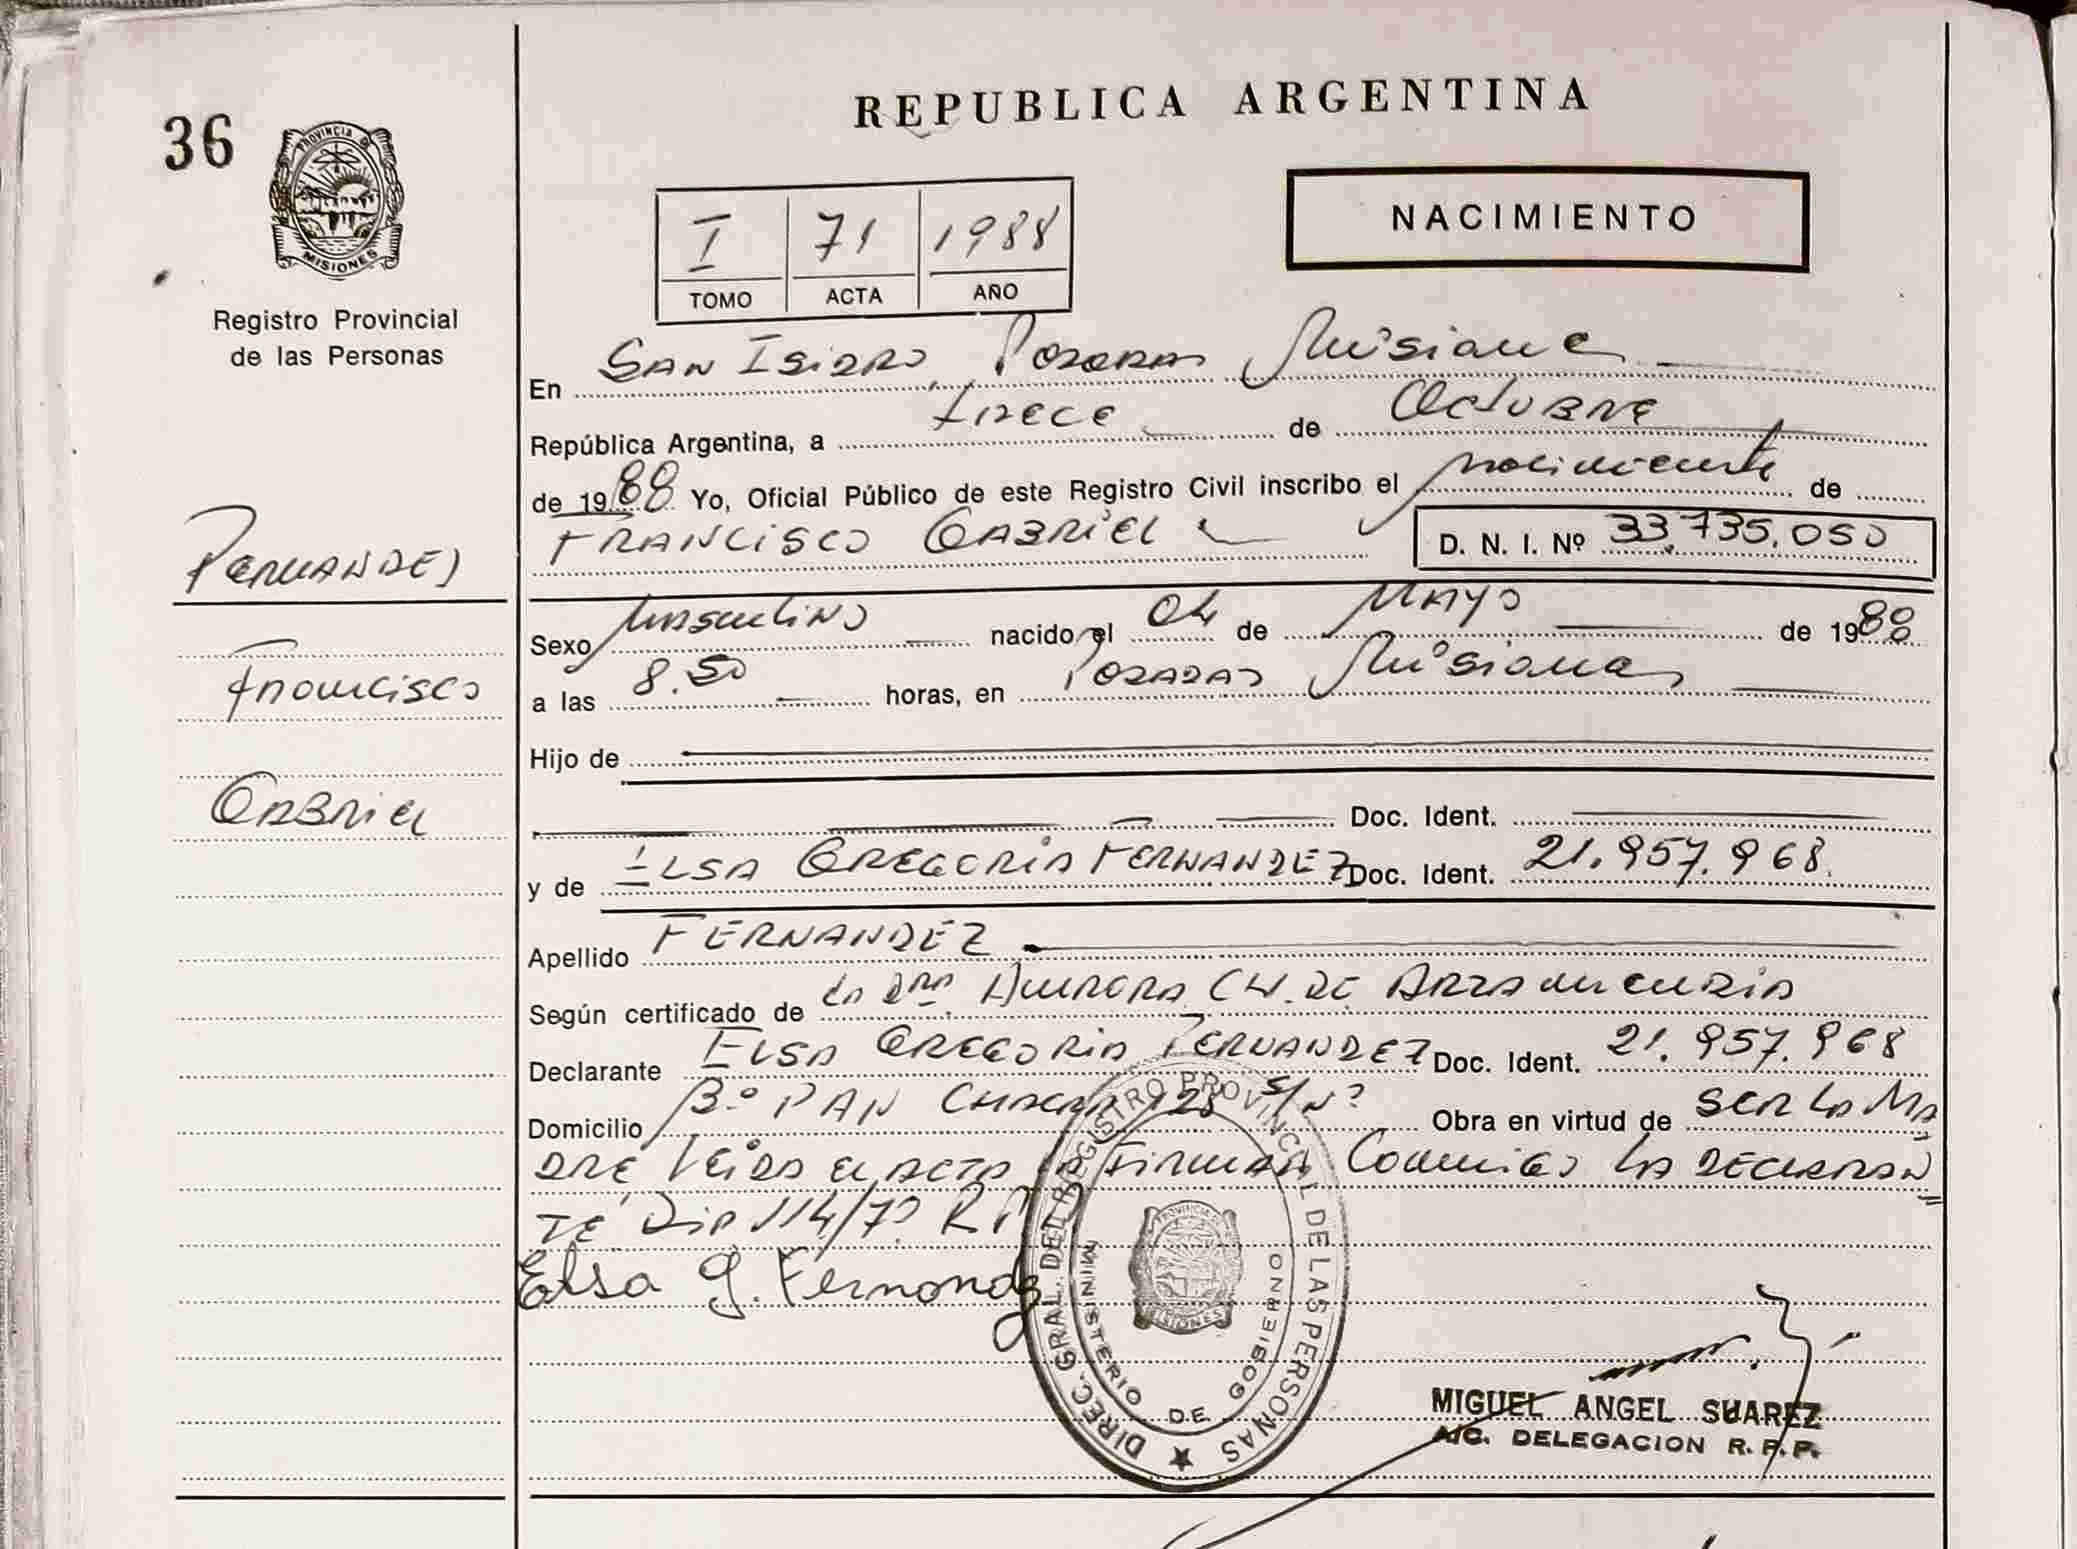 REPUBLICA ARGENTINA
36
PROVINCIA DE
MISIONES
Registro Provincial
de las Personas
NACIMIENTO
I 71 1988
TOMO ACTA AÑO
En SAN ISIDRO, POSADAS Misiones
República Argentina, a trece de Octubre
de 1988 Yo, Oficial Público de este Registro Civil inscribo el nacimiento de
FRANCISCO GABRIEL D. N. I. Nº 33.735.050
FERNANDEZ
Francisco
GABRIEL
Sexo Masculino nacido el 04 de Mayo de 1988
a las 8.50 horas, en POSADAS Misiones
Hijo de
Doc. Ident.
y de ELSA GREGORIA FERNANDEZ Doc. Ident. 21.957.968.
Apellido FERNANDEZ
Según certificado de la Dra AURORA CH. DE
Declarante ELSA GREGORIA FERNANDEZ Doc. Ident. 21.957.968
Domicilio Bº PAN CHACRA 128 S/Nº Obra en virtud de SER LA MA
DRE Leida el ACTA la Firman Conmigo LA DECLARAN=
TE 114/7
Elsa G. Fernandez
DIREC. GRAL. DEL REGISTRO PROVINCIAL DE LAS PERSONAS
MINISTERIO DE GOBIERNO
PROVINCIA DE
MISIONES
MIGUEL ANGEL SUAREZ
A/C. DELEGACION R. P. P.